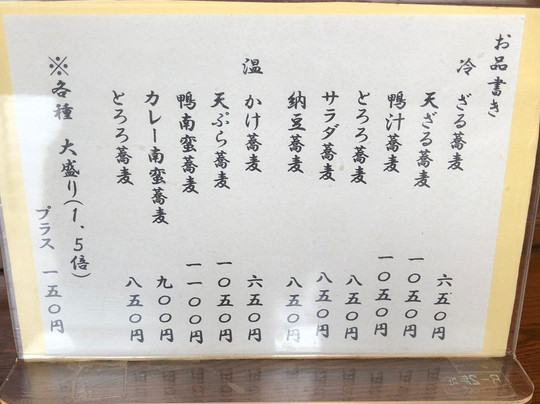 お品書き
冷 ざる蕎麦 六五〇円
天ざる蕎麦 一〇五〇円
鴨汁蕎麦 一〇五〇円
とろろ蕎麦 八五〇円
サラダ蕎麦 八五〇円
納豆蕎麦 八五〇円
温 かけ蕎麦 六五〇円
天ぷら蕎麦 一〇五〇円
鴨南蛮蕎麦 一一〇〇円
カレー南蛮蕎麦 九〇〇円
とろろ蕎麦 八五〇円
※各種 大盛り(1、5倍)
プラス 一五〇円